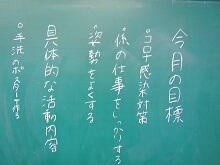 今月の目標
°コロナ感染対策
°係の仕事をしっかりする
°姿勢をよくする
具体的な活動内容
°手洗のポスター作り